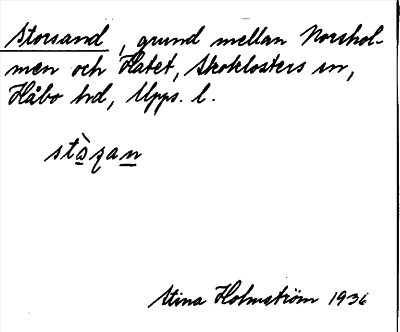 Storsand, grund mellan Norshol-
men och Flatet, Skoklosters sn,
Håbo hd, Upps. l.
stàƨan
Stina Holmström 1936